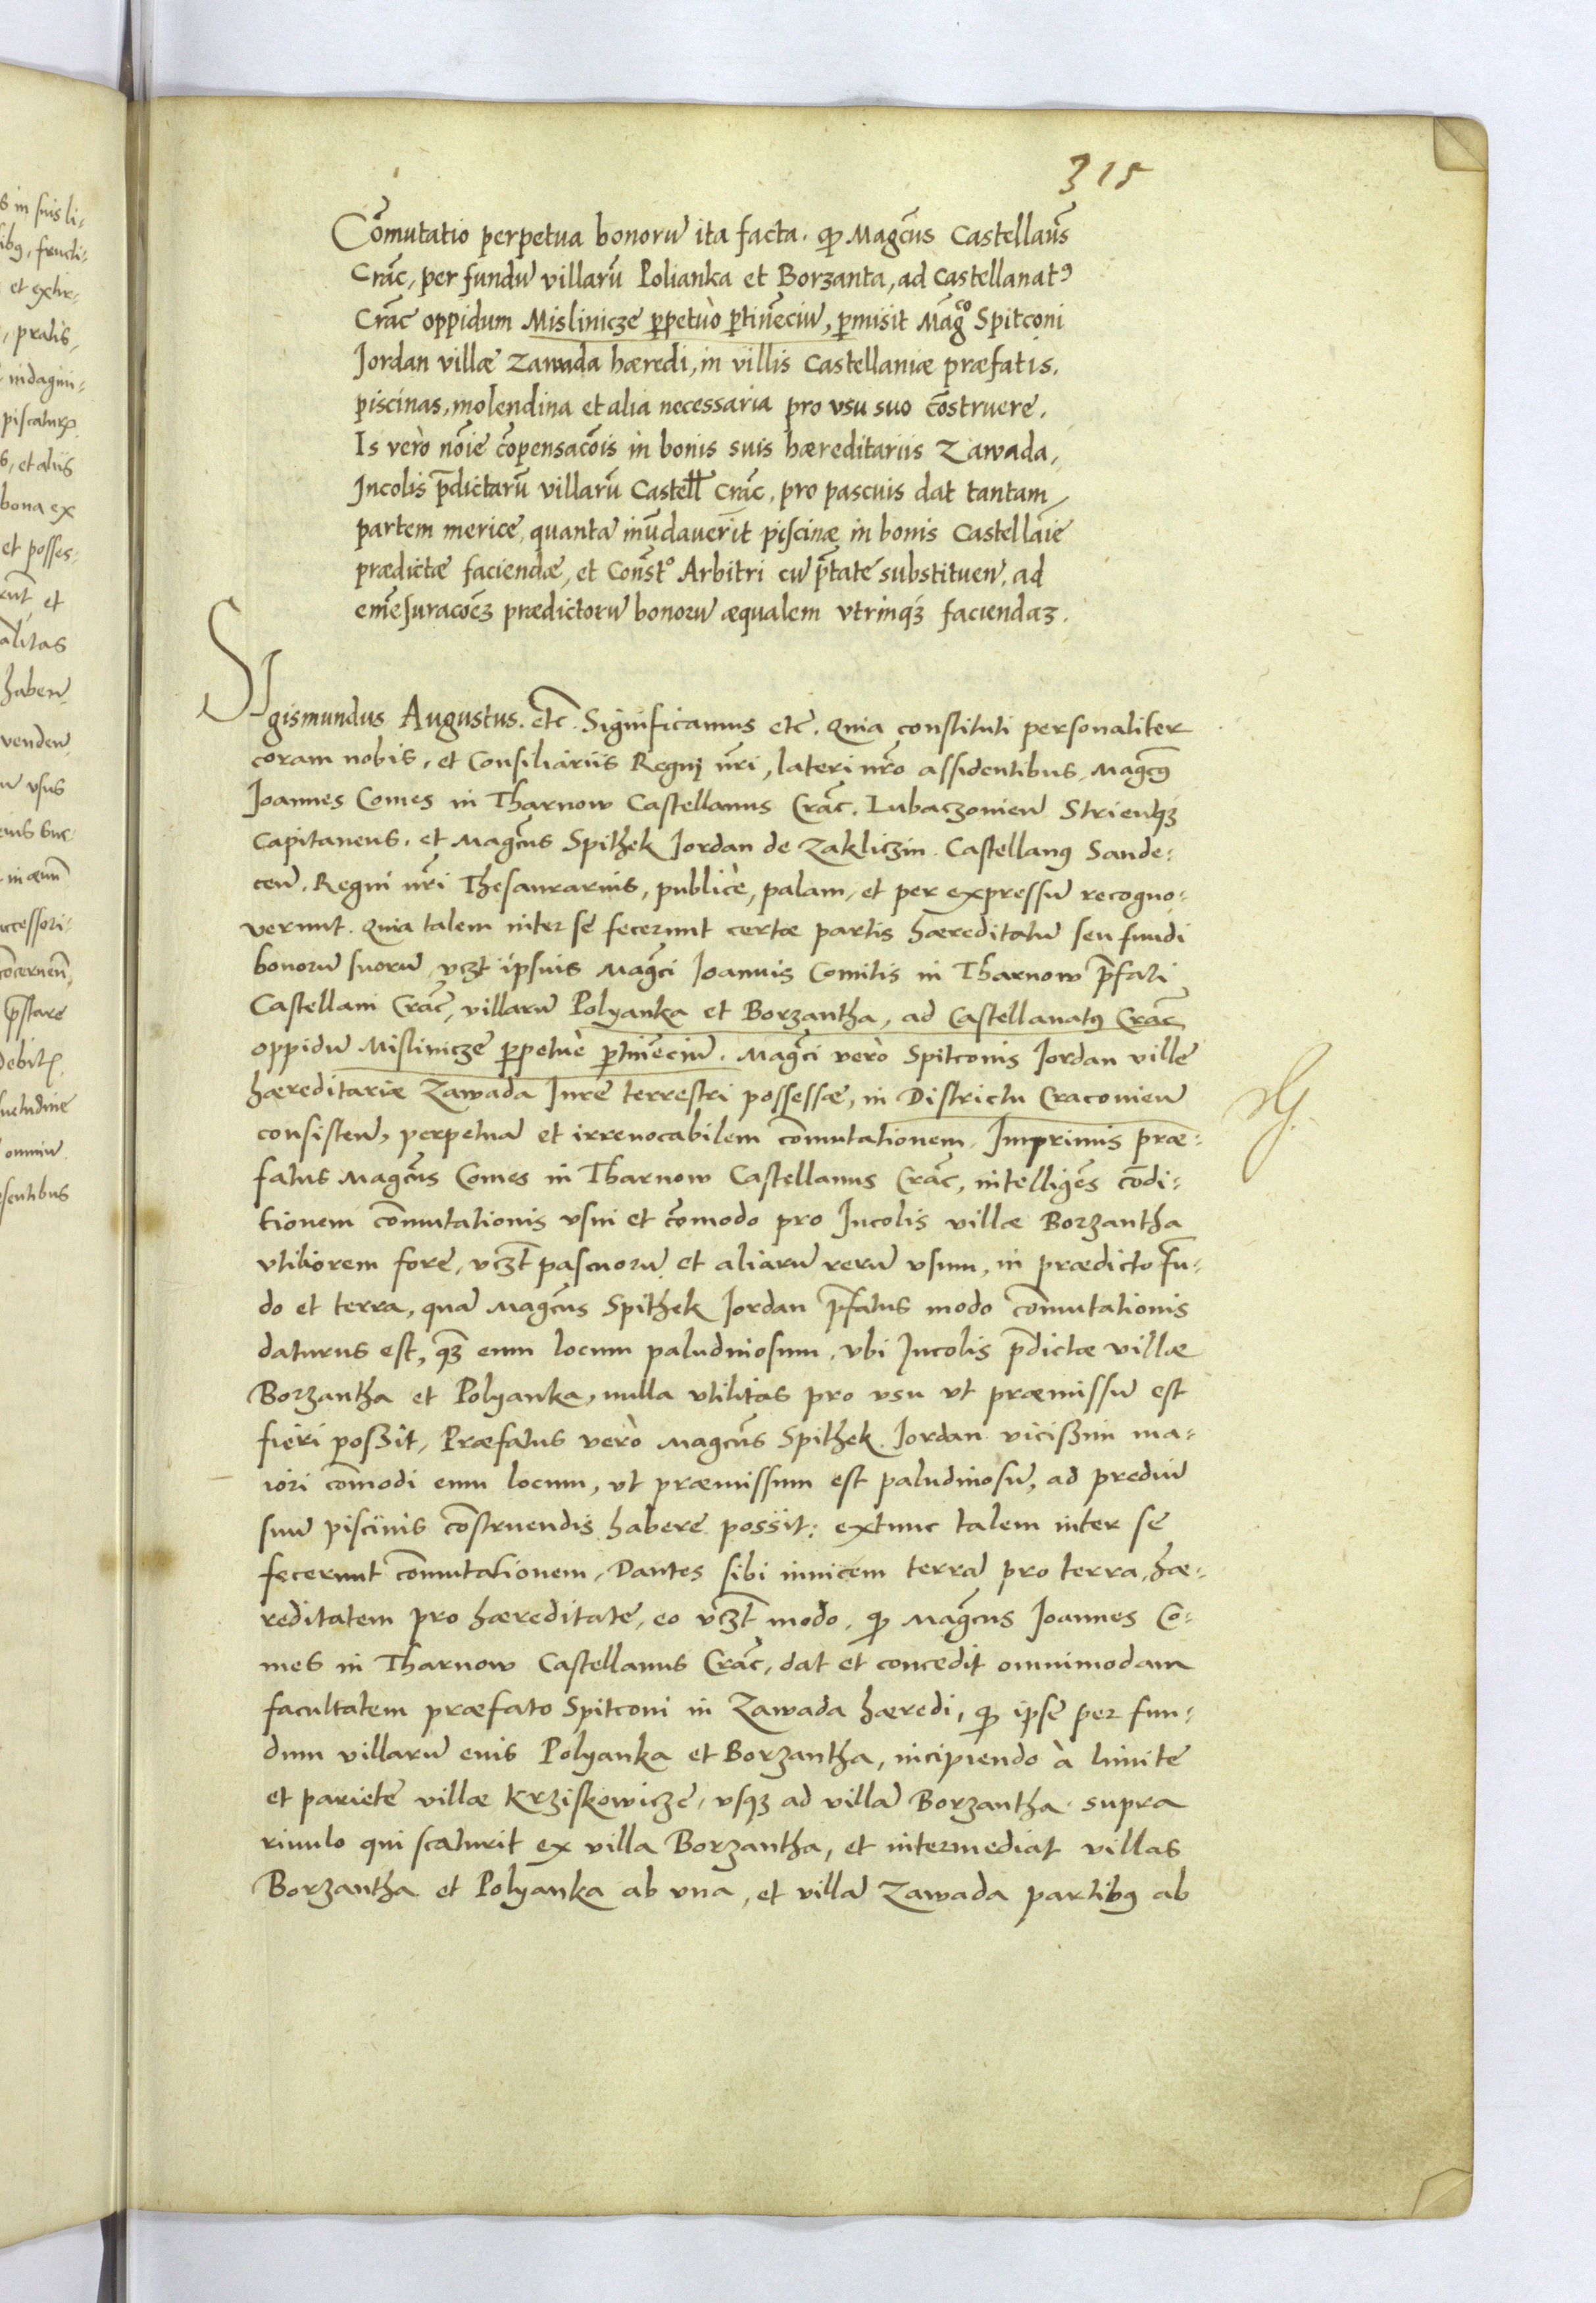 315
Cõmutatio perpetua bonorũ ita facta. ꝙ Magcũs Castellanũs
Crac̃, per fundũ villarũ Polianka et Borzanta, ad Castellanatꝰ
Crac̃ oppidum Mislinicze ꝑpetuò ꝑtineñciũ, ꝑmisit Mag̃co Spitconi
Jordan villæ Zawada hæredi, in villis Castellaniæ præfatis,
piscinas, molendina et alia necessaria pro vsu suo cõstruere.
Is verò nõie cõpensacõis in bonis suis hæreditariis Zawada,
Jncolis p̃dictarũ villarũ Castell Crac̃, pro pascuis dat tantam
partem mericæ, quantã inũdauerit piscinæ in bonis Castellãie
prædictæ faciendæ, et Consto Arbitri cũ p̃tate substituen̄, ad
emẽsuracoẽꝫ prædictorũ bonorũ æqualem vtrinqꝫ faciendaꝫ.
SIgismundus Augustus. etc̃. Significamus etc̃. Quia constituti personaliter
coram nobis, et Consiliariis Regni nr̃i, lateri nr̃o assidentibus, Magcꝰ
Joannes Comes in Tharnow Castellanus Crac̃. Lubaczouien̄ Strienqꝫ
Capitaneus. et Magcũs Spithek Jordan de Zakliczin. Castellanꝰ Sande-
cen̄. Regni nr̃i Thesaurarius, publicè, palam, et per expressũ recogno-
verunt. Quia talem inter se fecerunt certæ partis hæreditatũ seu fundi
bonorũ suorũ, vꝫt ipsius Mag̃ci Joannis Comitis in Tharnow p̃fati
Castellani Crac̃, villarũ Polyanka et Borzantha, ad Castellanatꝰ Crac̃
oppidũ Mislinicze ꝑpetuè ꝑtineñciũ. Mag̃ci verò Spitconis Jordan villæ
hæreditariæ Zawada Jure terrestri possessæ, in Districtu Cracouien̄
consisten̄, perpetuã et irreuocabilem cõmutationem. Jmprimis præ-
fatus Magcũs Comes in Tharnow Castellanus Crac̃, intelligẽs condi-
tionem cõmutationis vsui et cõmodo pro Jncolis villæ Borzantha
vtiliorem fore, vꝫt pascuorũ et aliarũ rerũ vsum, in prædicto fũ-
do et terra, quã Magcũs Spithek Jordan p̃fatus modo cõmutationis
daturus est, qꝫ eum locum paludinosum, vbi Jncolis p̃dictæ villæ
Borzantha et Polyanka, nulla vtilitas pro vsu vt præmissũ est
fieri possit, Præfatus verò Magcũs Spithek Jordan vicissim ma-
iori cõmodi eum locum, vt præmissum est paludinosũ, ad prediũ
suũ piscinis cõstruendis habere possit: extunc talem inter se
fecerunt cõmutationem, Dantes sibi inuicem terrã pro terra, hæ-
reditatem pro hæreditate, eo vꝫt modo, ꝙ Mag̃cus Joannes Co-
mes in Tharnow Castellanus Crac̃, dat et concedit omnimodam
facultatem præfato Spitconi in Zawada hæredi, ꝙ ipse per fun-
dum villarũ eius Polyanka et Borzantha, incipiendo à limite
et pariete villæ Krziskowicze, vsqꝫ ad villã Borzantha supra
riuulo qui scaturit ex villa Borzantha, et intermediat villas
Borzantha et Polyanka ab vna, et villã Zawada partibꝰ ab